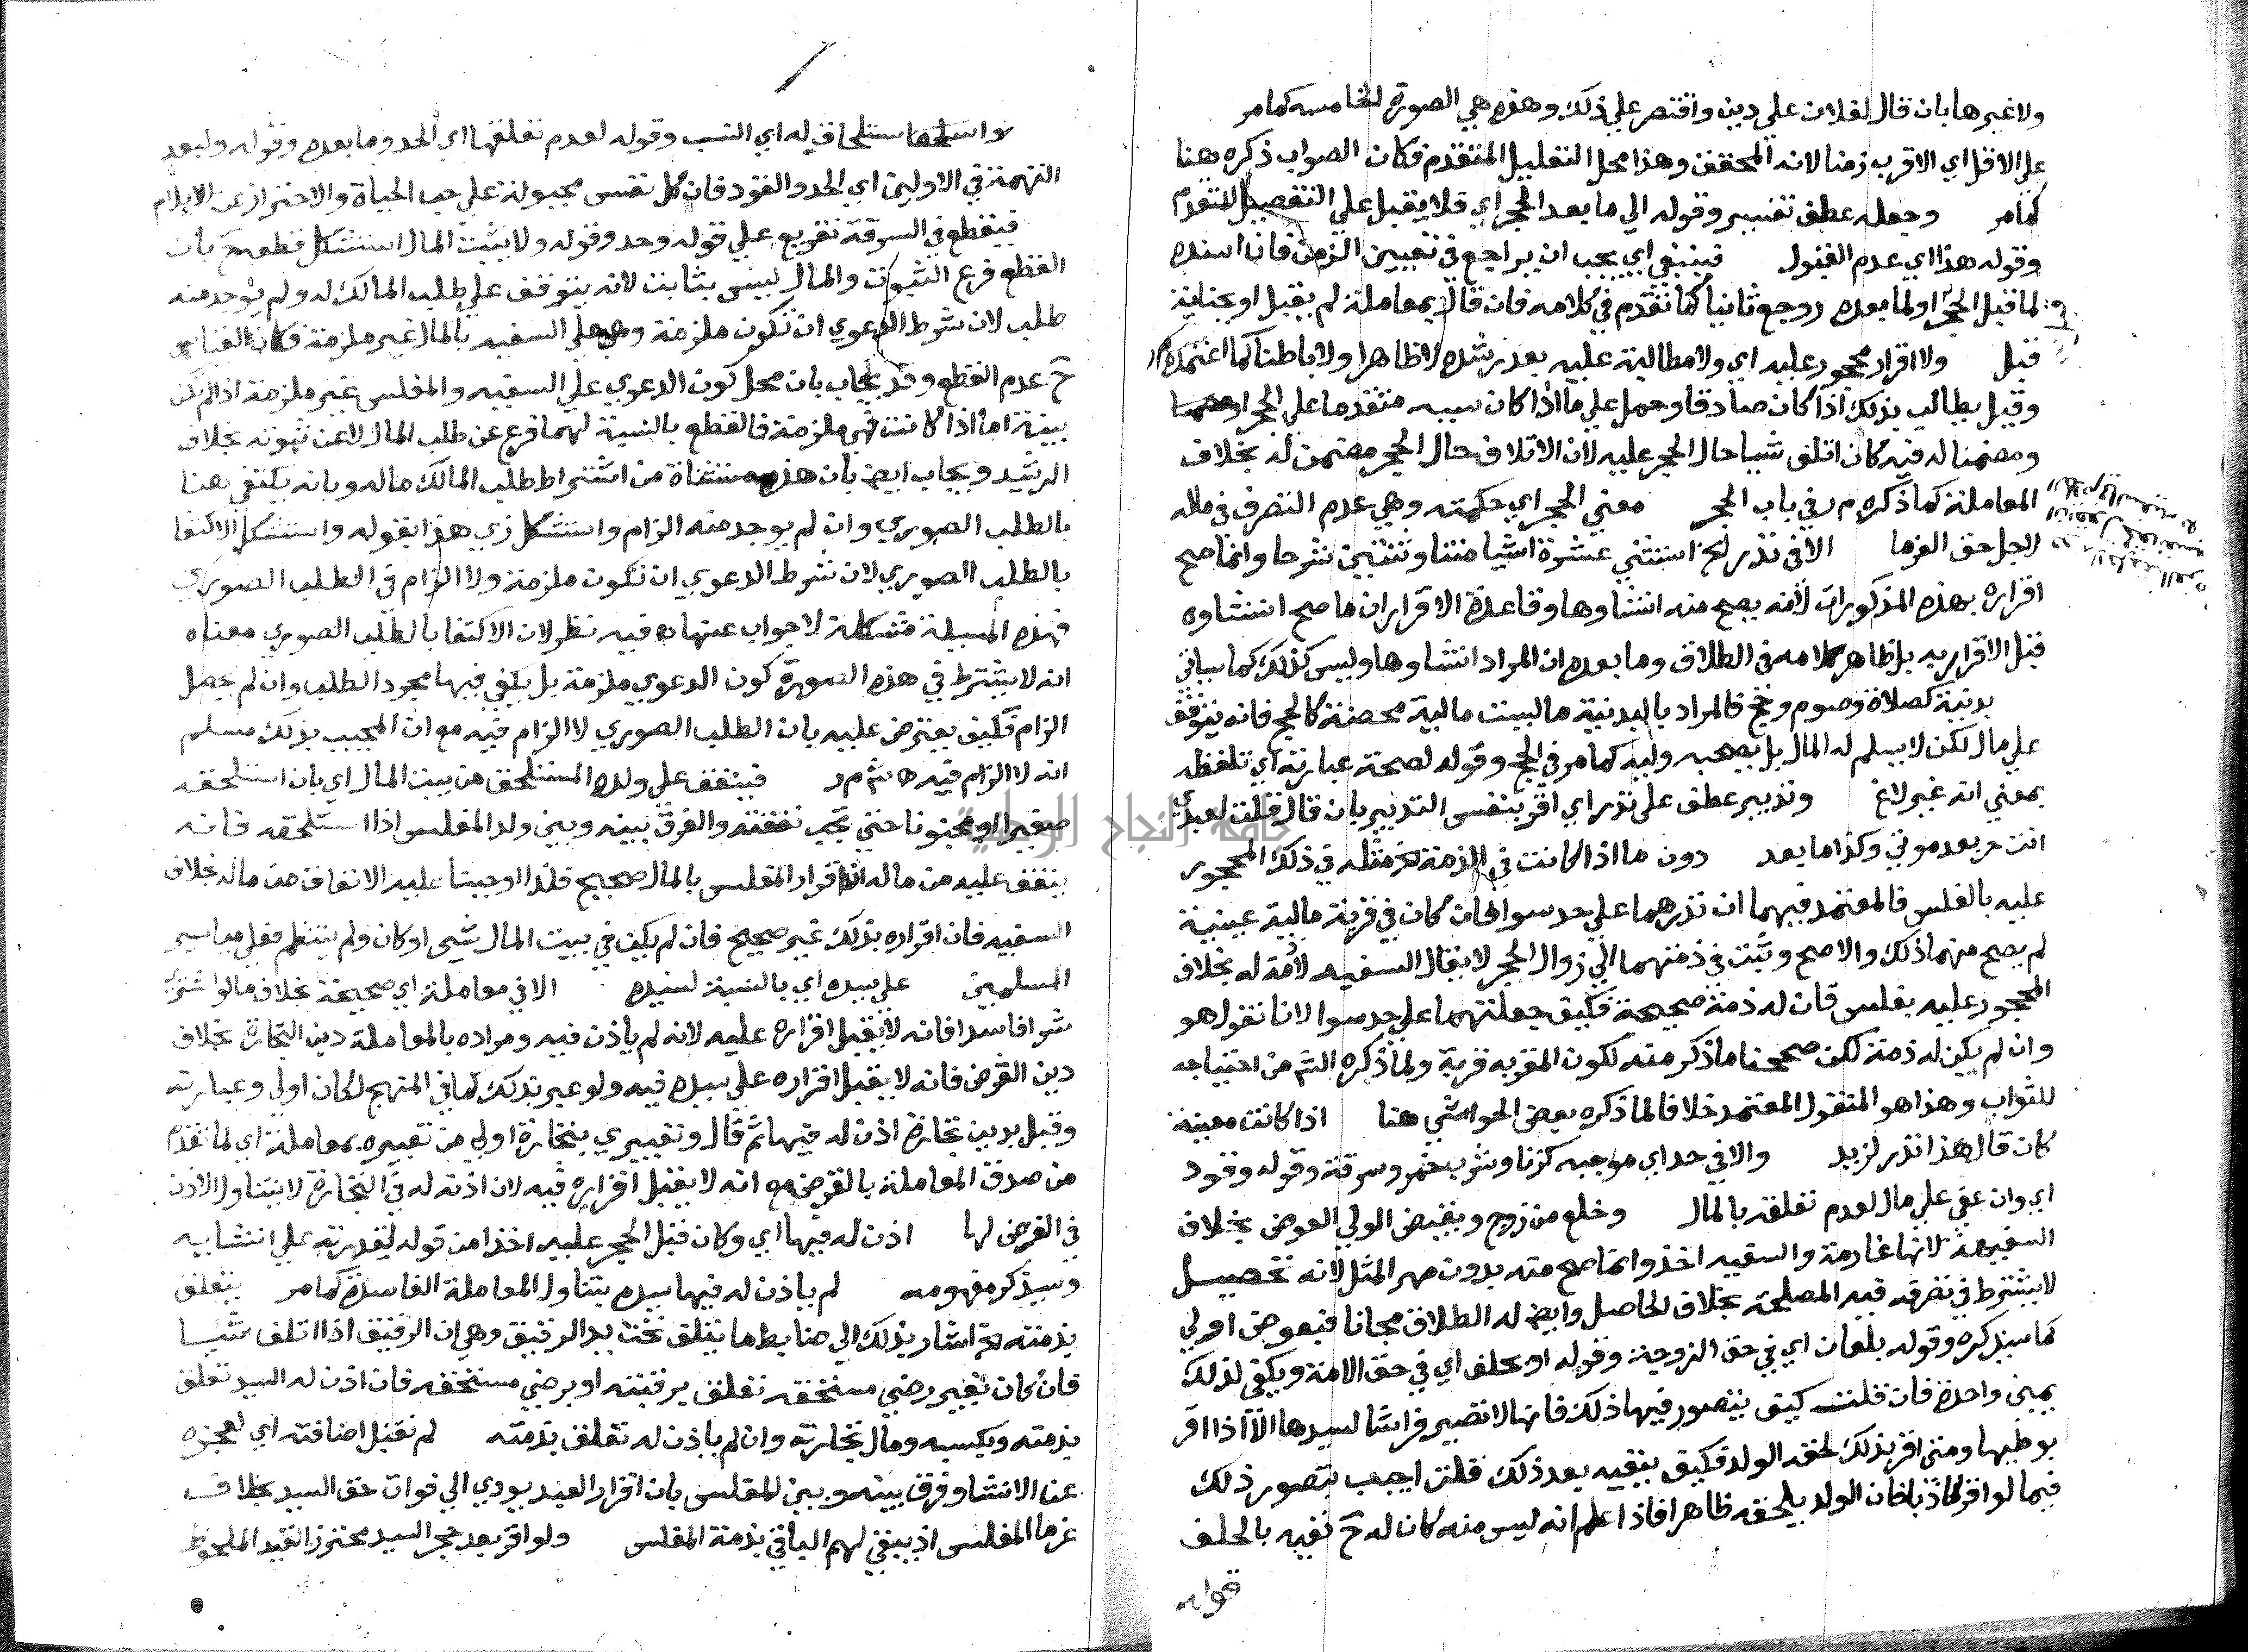 ولا غيرها بان قال لفلان علي دين واقتصر علي ذلك وهذه هي الصورة الخامسه كمامر
علي الاقل اي الاقرب زمنا لانه المحقق وهذا محل التعليل المتقدم فكان الصواب ذكره هنا
كمامر وجعله عطف تفسير وقوله الي ما بعد الحجر اي فلا يقبل علي التفصيل المتقدم
وقوله هذا اي عدم القبول فينبغي اي يجب ان يراجع في تعيين الزمن فان اسنده
لما قبل الحجر او لما بعده روجع ثانيا كما تقدم في كلامه فان قال بمعاملة لم يقبل او بجناية
قبل ولا اقرار محجور عليه اي ولا مطالبة عليه بعد رشده لا ظاهرا ولا باطنا كما اعتمده م ر
وقيل يطالب بذلك اذا كان صادقا وحمل علي ما اذا كان سببه متقدما علي الحجر او
ومضمنا له فيه كان اتلف شيا حال الحجر عليه لان الاتلاف حال الحجر مضمن له بخلاف
المعاملة كما ذكره م ر في باب الحجر معني الحجر اي حكمته وهي عدم التصرف في ماله
لاجل حق الغرما الا في نذر الخ استثني عشرة اشيا متنا وثنتين شرحا وانما صح
اقراره بهذه المذكورات لانه يصح منه انشاوها وقاعدة الاقرار ان ما صح انشاوه
قبل الاقرار به بل ظاهر كلامه في الطلاق وما بعده ان المراد انشاوها وليس كذلك كما سياتي
بدنية كصلاة وصوم وحج فالمراد بالبدنية ما ليست مالية محضة كالحج فانه يتوقف
علي مال لكن لا يسلم له المال بل يصحبه وليه كما مر في الحج وقوله لصحة عبارته اي تلفظه
بمعني انه غير لاغ وتدبير عطف علي نذر اي اقر بنفس التدبير بان قال قلت لعبدي
انت حر بعد موتي وكذا ما بعد دون ما اذا كانت في الذمة الخ مثله في ذلك المحجور
عليه بالفلس فالمعتمد فيهما ان نذرهما علي حد سوا فان كان في قربة مالية عينية
لم يصح منهما ذلك والا صح وثبت في ذمتهما الي زوال الحجر لا يقال السفيه لا ذمة له بخلاف
المحجور عليه بفلس فان له ذمة صحيحة فكيف جعلتهما علي حد سوا لانا نقول هو
وان لم يكن له ذمة لكن صححنا ما ذكر منه لكون المقر به قربة ولما ذكره الش من احتياجه
للثواب وهذا هو المنقول المعتمد خلافا لما ذكره بعض الحواشي هنا اذا كانت معينة
كان قال هذا نذر لزيد والا في حد اي موجبه كزنا وشرب خمر وسرقة وقوله وقود
اي وان عفي علي مال لعدم تعلقه بالمال وخلع من زوج ويقبض الولي العوض بخلاف
السفيهة لانها غارمة والسفيه اخذ وانما صح منه بدون مهر المثل لانه تحصيل
لا يشترط في تصرفه فيه المصلحة بخلاف الحاصل وايض له الطلاق مجانا فبعوض اولي
كما سيذكره وقوله بلعان اي في حق الزوجة وقوله او بحلف اي في حق الامة ويكفي لذلك
يمين واحدة فان قلت كيف يتصور فيها ذلك فانها لا تصير فراشا لسيدها الا اذا اقر
بوطيها ومتي اقر بذلك لحقه الولد فكيف ينفيه بعد ذلك قلت اجيب بتصور ذلك
فيما لو اقر كاذبا فان الولد يلحقه ظاهرا فاذا علم انه ليس منه كان له ح نفيه بالحلف
قوله
لا استلحاق له اي النسب وقوله لعدم تعلقها اي الحد وما بعده وقوله ولبعد
التهمة في الاولين اي الحد والقود فان كل نفس مجبولة علي حب الحياة والاحتراز عن الايلام
فيقطع في السرقة تفريع علي قوله وحد وقوله ولا يثبت المال استشكل قطعه ح بان
القطع فرع الثبوت والمال ليس بثابت لانه يتوقف علي طلب المالك له ولم يوجد منه
طلب لان شرط الدعوي ان تكون ملزمة وهي علي السفيه بالمال غير ملزمة فكان القياس
ح عدم القطع وقد يجاب بان محل كون الدعوي علي السفيه والمفلس غير ملزمة اذا لم تكن
بينة اما اذا كانت فهي ملزمة فالقطع بالنسبة لهما فرع عن طلب المال لا عن ثبوته بخلاف
الرشيد ويجاب ايض بان هذه مستثناة من اشتراط طلب المالك ماله وبانه يكتفي هنا
بالطلب الصوري وان لم يوجد منه الزام واستشكل زي هذا بقوله واستشكل الاكتفا
بالطلب الصوري لان شرط الدعوي ان تكون ملزمة ولا الزام في الطلب الصوري
فهذه المسيلة مشكلة لا جواب عنها وفيه نظر لان الاكتفا بالطلب الصوري معناه
انه لا يشترط في هذه الصورة كون الدعوي ملزمة بل يكفي فيها مجرد الطلب وان لم يحصل
الزام فكيف يعترض عليه بان الطلب الصوري لا الزام فيه مع ان المجيب بذلك مسلم
انه لا الزام فيه فينفق علي ولده المستلحق من بيت المال اي بان استلحقه
صغيرا او مجنونا حتي تجب نفقته والفرق بينه وبين ولد المفلس اذا استلحقه فانه
ينفق عليه من ماله ان اقرار المفلس بالمال صحيح فلذا اوجبنا عليه الانفاق من ماله بخلاف
السفيه فان اقراره بذلك غير صحيح فان لم يكن في بيت المال شي او كان ولم ينتظم فعلي مياسير
المسلمين علي سيده اي بالنسبة لسيده الا في معاملة اي صحيحة بخلاف ما لو اشتري
شرا فاسدا فانه لا يقبل اقراره عليه لانه لم ياذن فيه ومراده بالمعاملة دين التجارة بخلاف
دين القرض فانه لا يقبل اقراره علي سيده فيه ولو عبر بذلك كما في المنهج لكان اولي وعبارته
وقبل بدين تجارة اذن له فيها ثم قال وتعبيري بتجارة اولي من تعبيره بمعاملة اي لما تقدم
من صدق المعاملة بالقرض مع انه لا يقبل اقراره فيه لان اذنه له في التجارة لا يتناول الاذن
في القرض لها اذن له فيها اي وكان قبل الحجر عليه اخذا من قوله لقدرته علي انشايه
وسيذكر مفهومه لم ياذن له فيها سيده يتناول المعاملة الفاسدة كما مر يتعلق
بذمته الخ اشار بذلك الي ضابط ما يتلف تحت يد الرقيق وهي ان الرقيق اذا اتلف شيا
فان كان بغير رضي مستحقه تعلق برقبته او برضي مستحقه فان اذن له السيد تعلق
بذمته وبكسبه ومال تجارته وان لم ياذن له تعلق بذمته لم تقبل اضافته اي لعجزه
عن الانشا وفرق بينه وبين المفلس بان اقرار العبد يودي الي فوات حق السيد بخلاف
غرما المفلس اذ يبقي لهم الباقي بذمة المفلس ولو اقر بعد حجر السيد محترز القيد الملحوظ